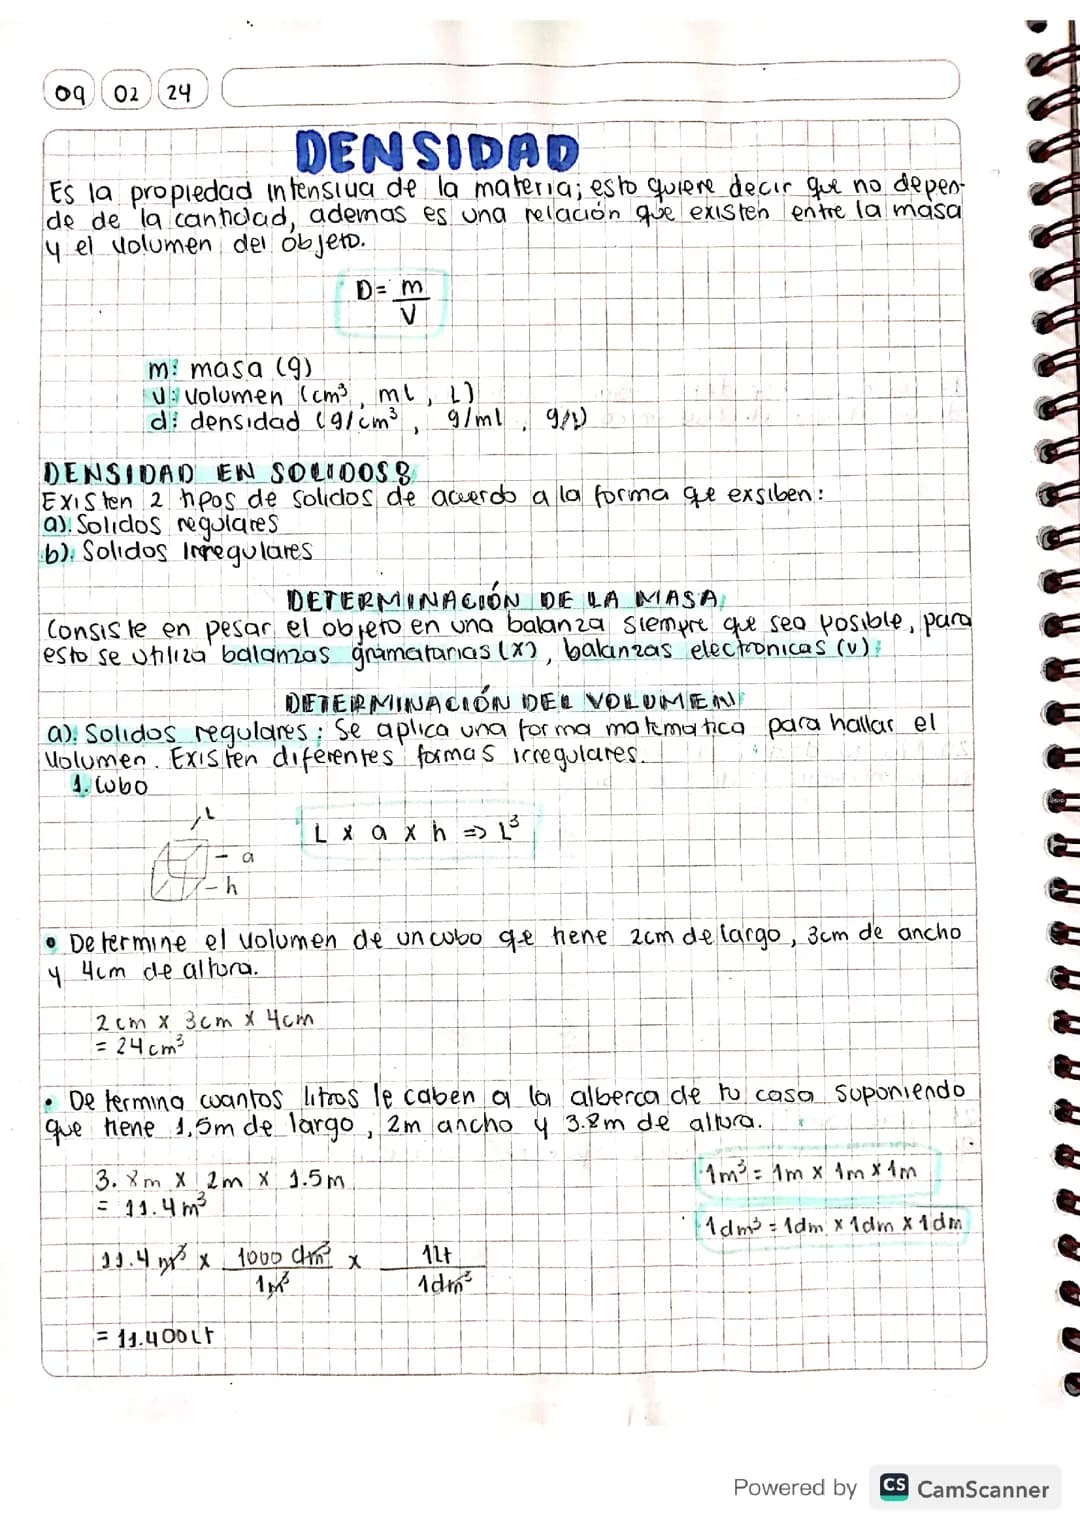 09 02 24
DENSIDAD
Es la propiedad intensiva de la materia; esto quiere decir que no depen-
de de la cantidad, ademas es una relación que existen entre la masa
y el volumen del objeto.
D= m
V
m: masa (g)
v: volumen (cm³, ml, L)
d: densidad (g/cm³, g/ml, g/l)
DENSIDAD EN SOLIDOS:
Existen 2 tipos de solidos de acuerdo a la forma qe exsiben:
a). Solidos regulares
b). Solidos Irregulares
DETERMINACIÓN DE LA MASA
Consiste en pesar el objeto en una balanza siempre que sea posible, para
esto se utiliza balanzas gramatarias (x), balanzas electronicas (v).
DETERMINACIÓN DEL VOLUMEN
a). Solidos regulares: Se aplica una forma matematica para hallar el
Volumen. Existen diferentes formas irregulares.
1. Cubo
L
a
h
L x a x h => L³
• Determine el volumen de un cubo qe tiene 2cm de largo, 3cm de ancho
y 4cm de altura.
2cm x 3cm x 4cm
= 24cm³
• Determina cuantos litros le caben a la alberca de tu casa suponiendo
que tiene 1,5m de largo, 2m ancho y 3.8m de altura.
3.8m x 2m x 1.5m
= 11.4m³
1m³ = 1m x 1m x 1m
1dm³ = 1dm x 1dm x 1dm
11.4 m³ x 1000 dm³ x 1Lt
1m³ 1dm³
= 11.400Lt
Powered by CS CamScanner